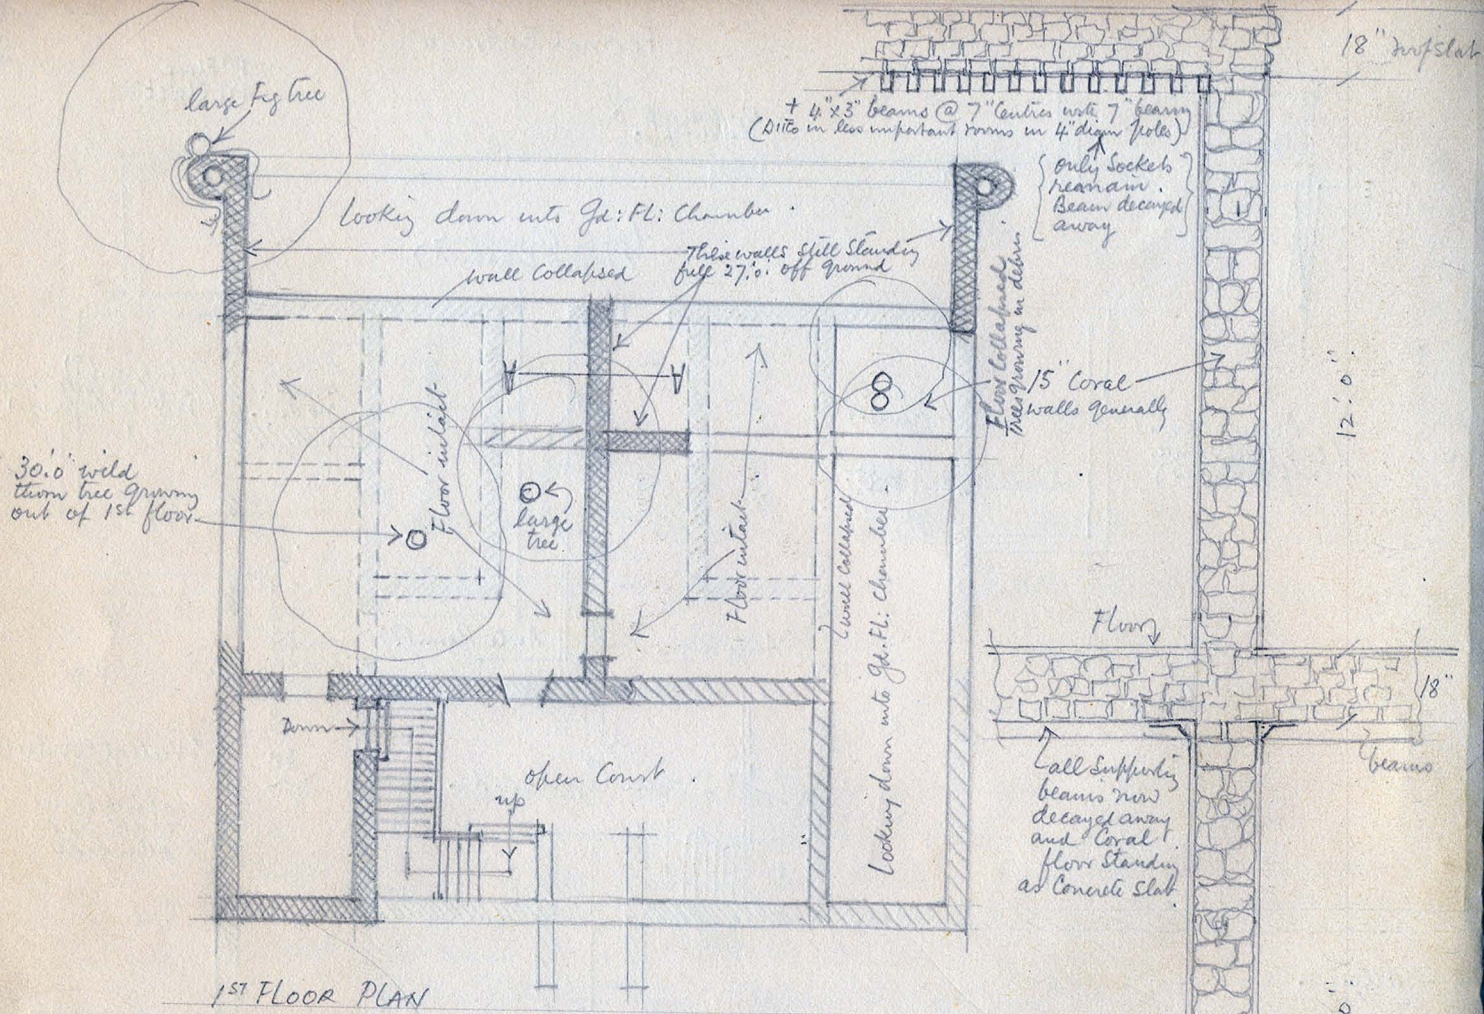 large Fig tree
18" roof slab
+ 4"x3" beams @ 7" Centres with 7" bearing
(Ditto in less important rooms in 4" diam poles)
only Sockets
remain.
Beam decayed
away
looking down into Gd: Fl: Chamber.
These walls Still Standing
full 27'.0" off ground
wall Collapsed
Floor Collapsed
Trees growing in debris
15" Coral
walls generally
12'.0"
A
A
Floor intact
30'.0" wild
thorn tree growing
out of 1st floor
large
tree
Floor intact
wall Collapsed
Looking down into Gd: Fl: Chamber.
Floor
18"
beams
all Supporting
beams now
decayed away
and Coral
floor Standing
as Concrete Slab
Down
open Court.
up
1ST FLOOR PLAN